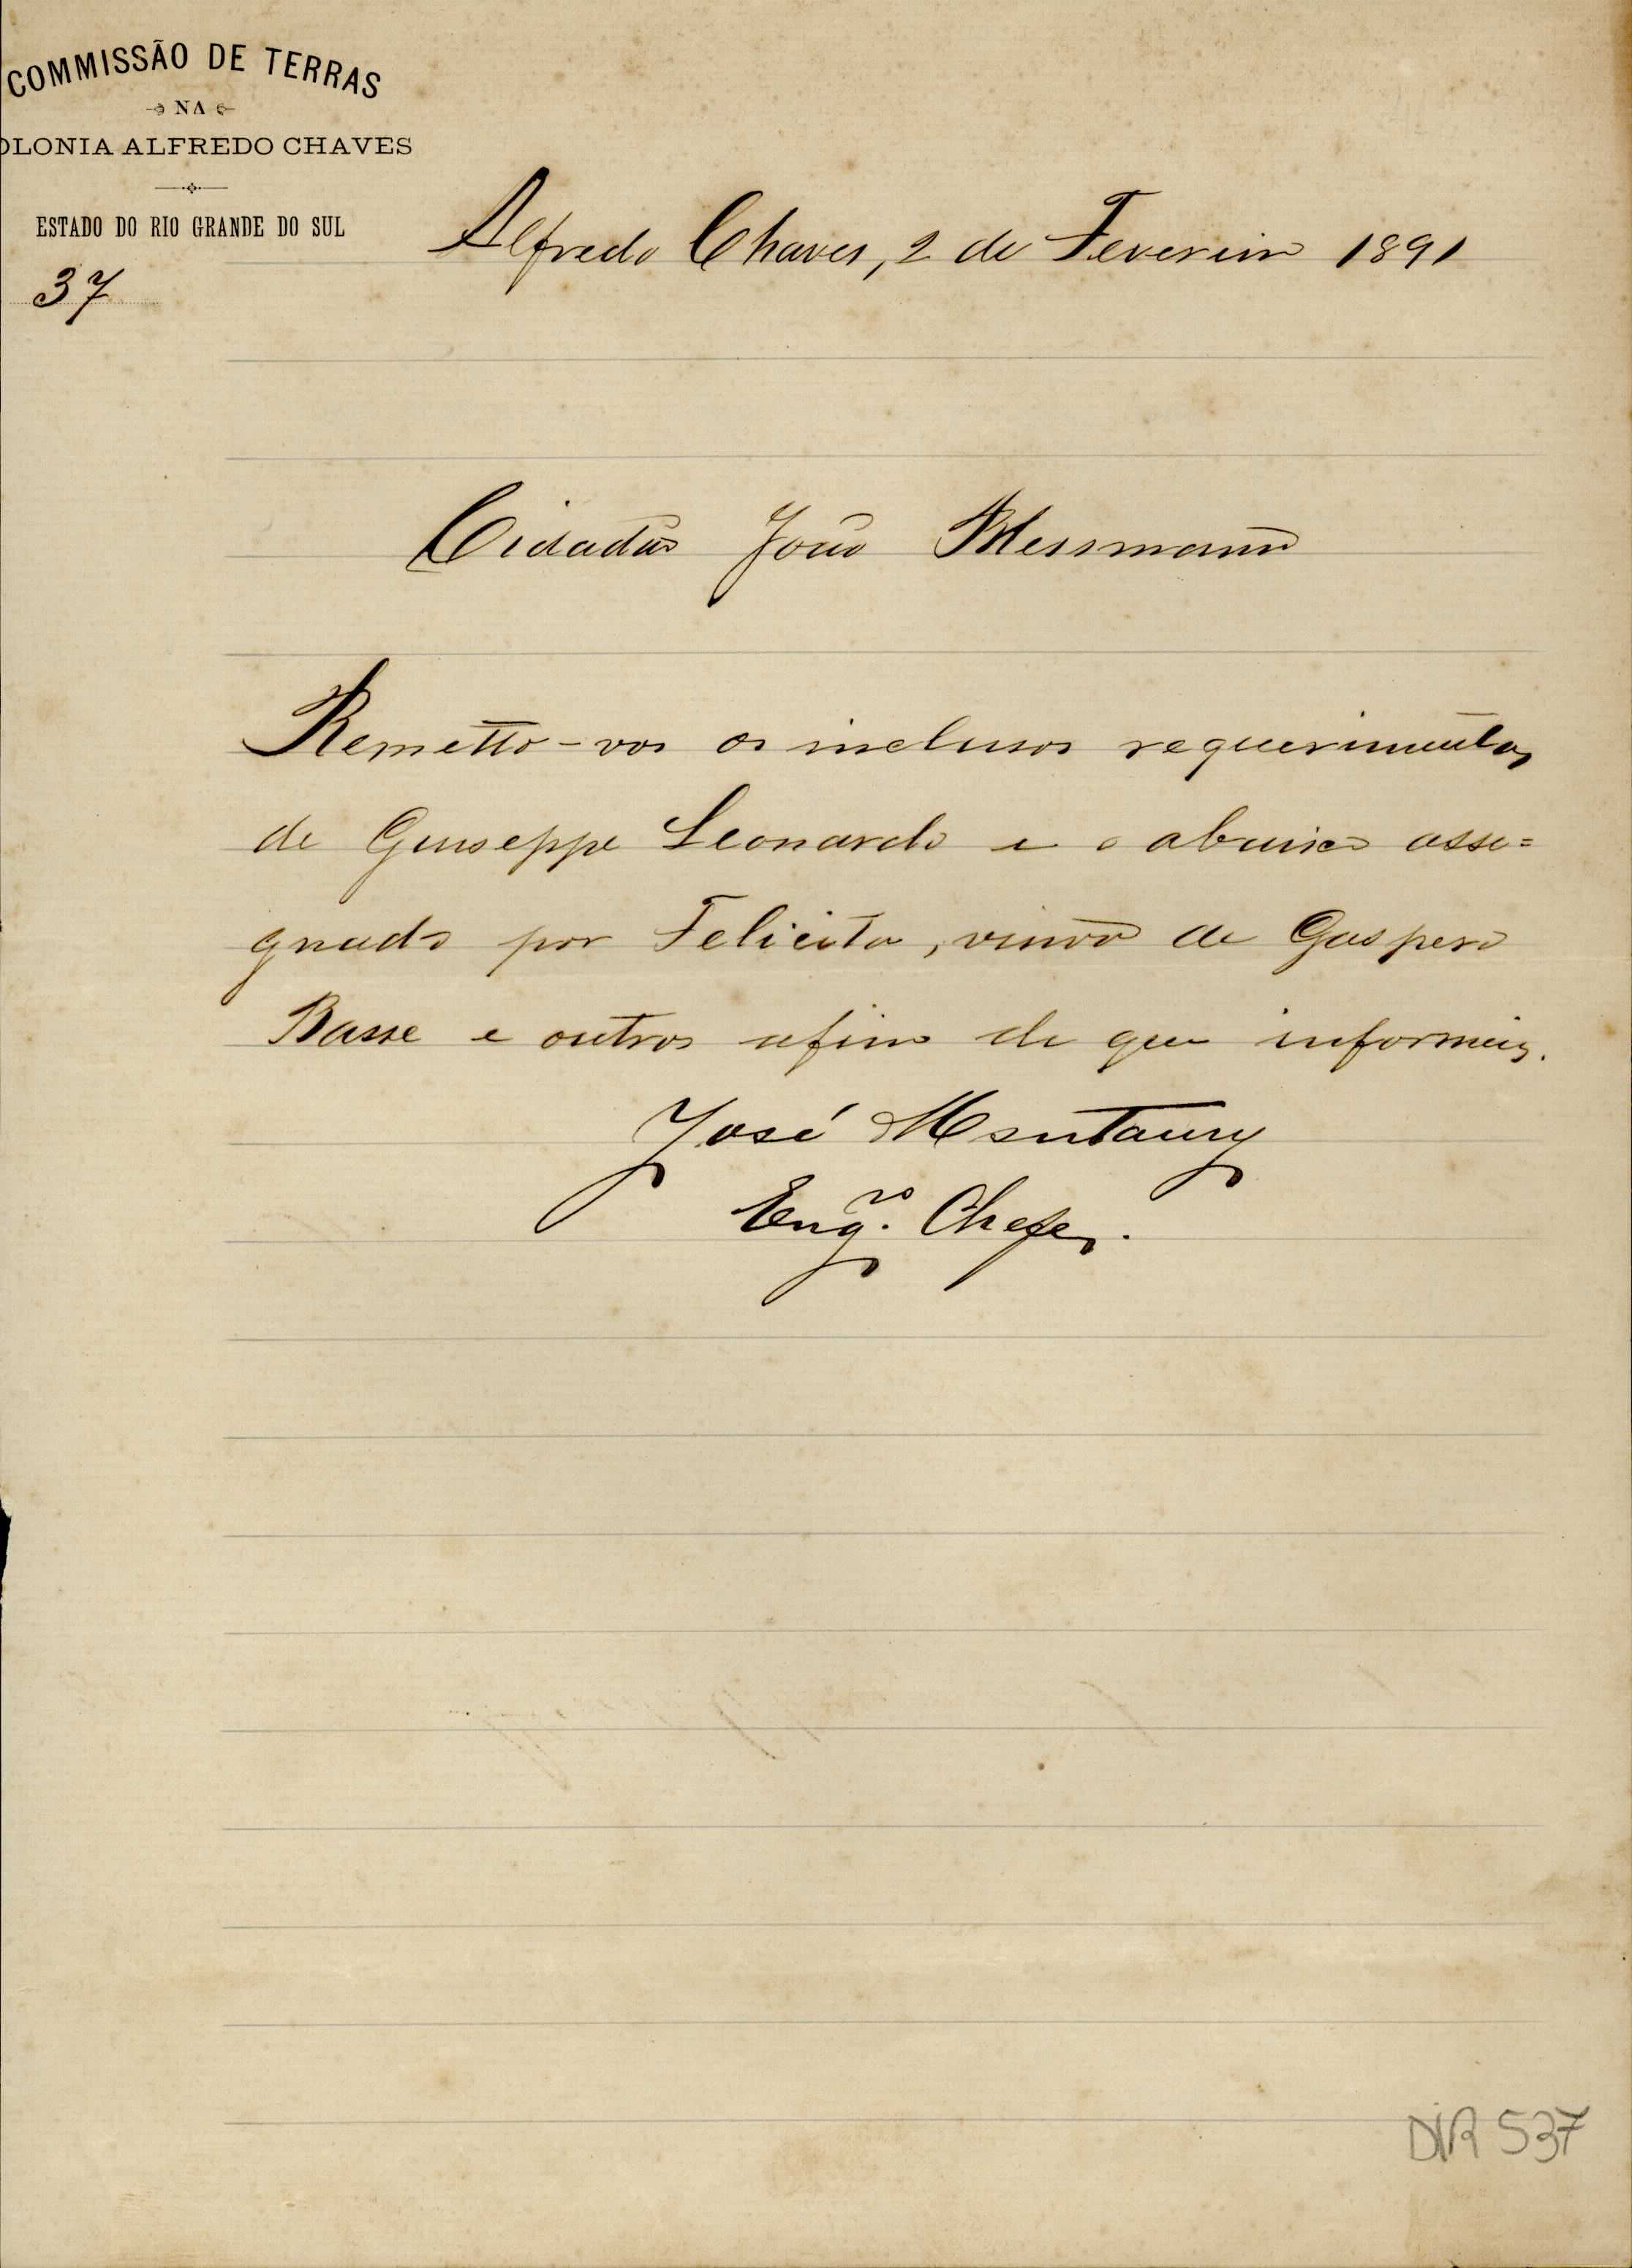 COMMISSÃO DE TERRAS
NA
OLONIA ALFREDO CHAVES
ESTADO DO RIO GRANDE DO SUL
37
Alfredo Chaves, 2 de Fevereiro 1891
Cidadão João Messmann
Remetto-vos os inclusos requerimentos
de Giuseppe Leonardo e o abaixo assi=
gnado por Felicita, viuva de Gaspero
Basse e outros afim de que informeis.
José Montaury
Engro. Chefe.
DIR 537